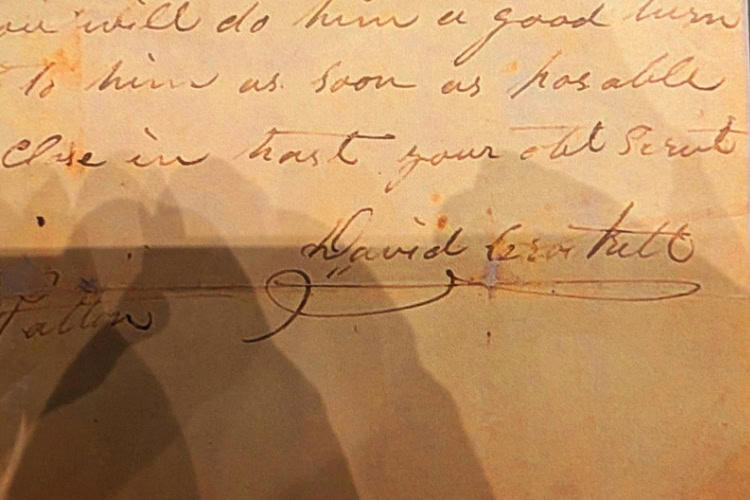 will do him a good turn
to him as soon as posable
Close in hast your obt Servt
David Crockett
Patton